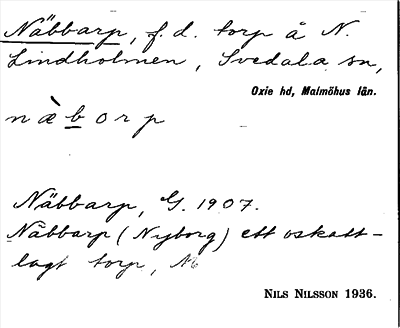 Näbbarp, f.d. torp å N.
Lindholmen, Svedala sn,
Oxie hd, Malmöhus län.
næ̀borp
Näbbarp, G. 1907.
Näbbarp (Nyborg) ett oskatt-
lagt torp,
NILS NILSSON 1936.